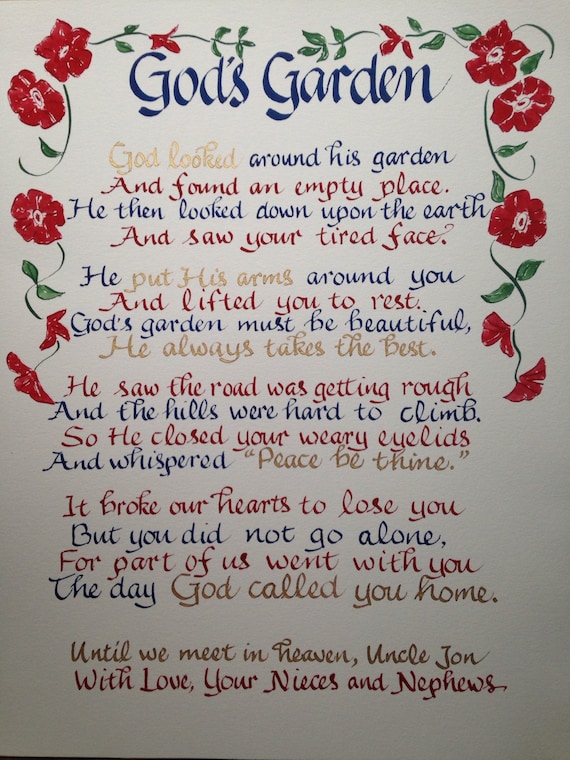 God's Garden
God looked around his garden
And found an empty place.
He then looked down upon the earth
And saw your tired face.
He put His arms around you
And lifted you to rest.
God's garden must be beautiful,
He always takes the best.
He saw the road was getting rough
And the hills were hard to climb.
So He closed your weary eyelids
And whispered "Peace be thine."
It broke our hearts to lose you
But you did not go alone,
For part of us went with you
The day God called you home.
Until we meet in heaven, Uncle Jon
With Love, Your Nieces and Nephews